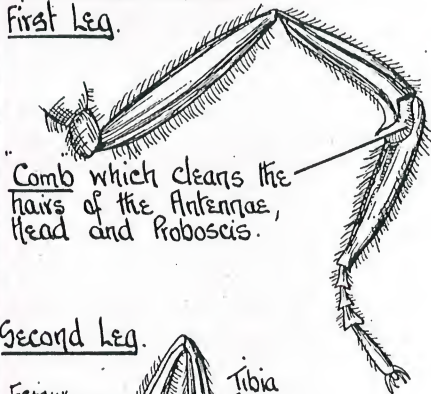 First Leg.
"Comb" which cleans the
hairs of the Antennae,
Head and Proboscis.
Second Leg.
Tibia